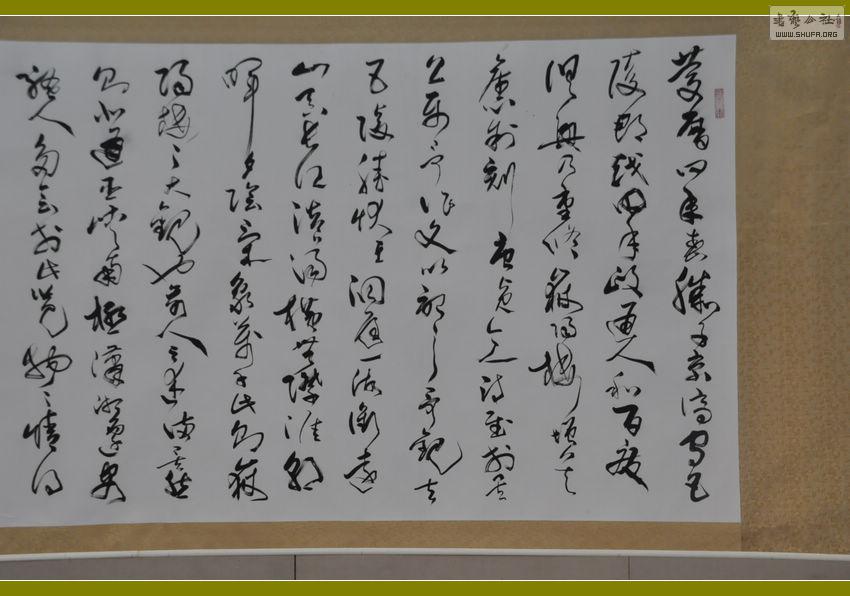 慶曆四年春滕子京謫守巴
陵郡越明年政通人和百废
俱興乃重修嶽陽樓增其
舊制刻唐賢今人詩賦於其
上屬予作文以記之予觀夫
巴陵勝狀在洞庭一湖銜遠
山吞長江浩浩湯湯橫無際涯朝
暉夕陰氣象萬千此則嶽
陽樓之大觀也前人之述備矣然
則北通巫峽南極瀟湘遷客
騷人多會於此覽物之情得
書藝公社
WWW.SHUFA.ORG